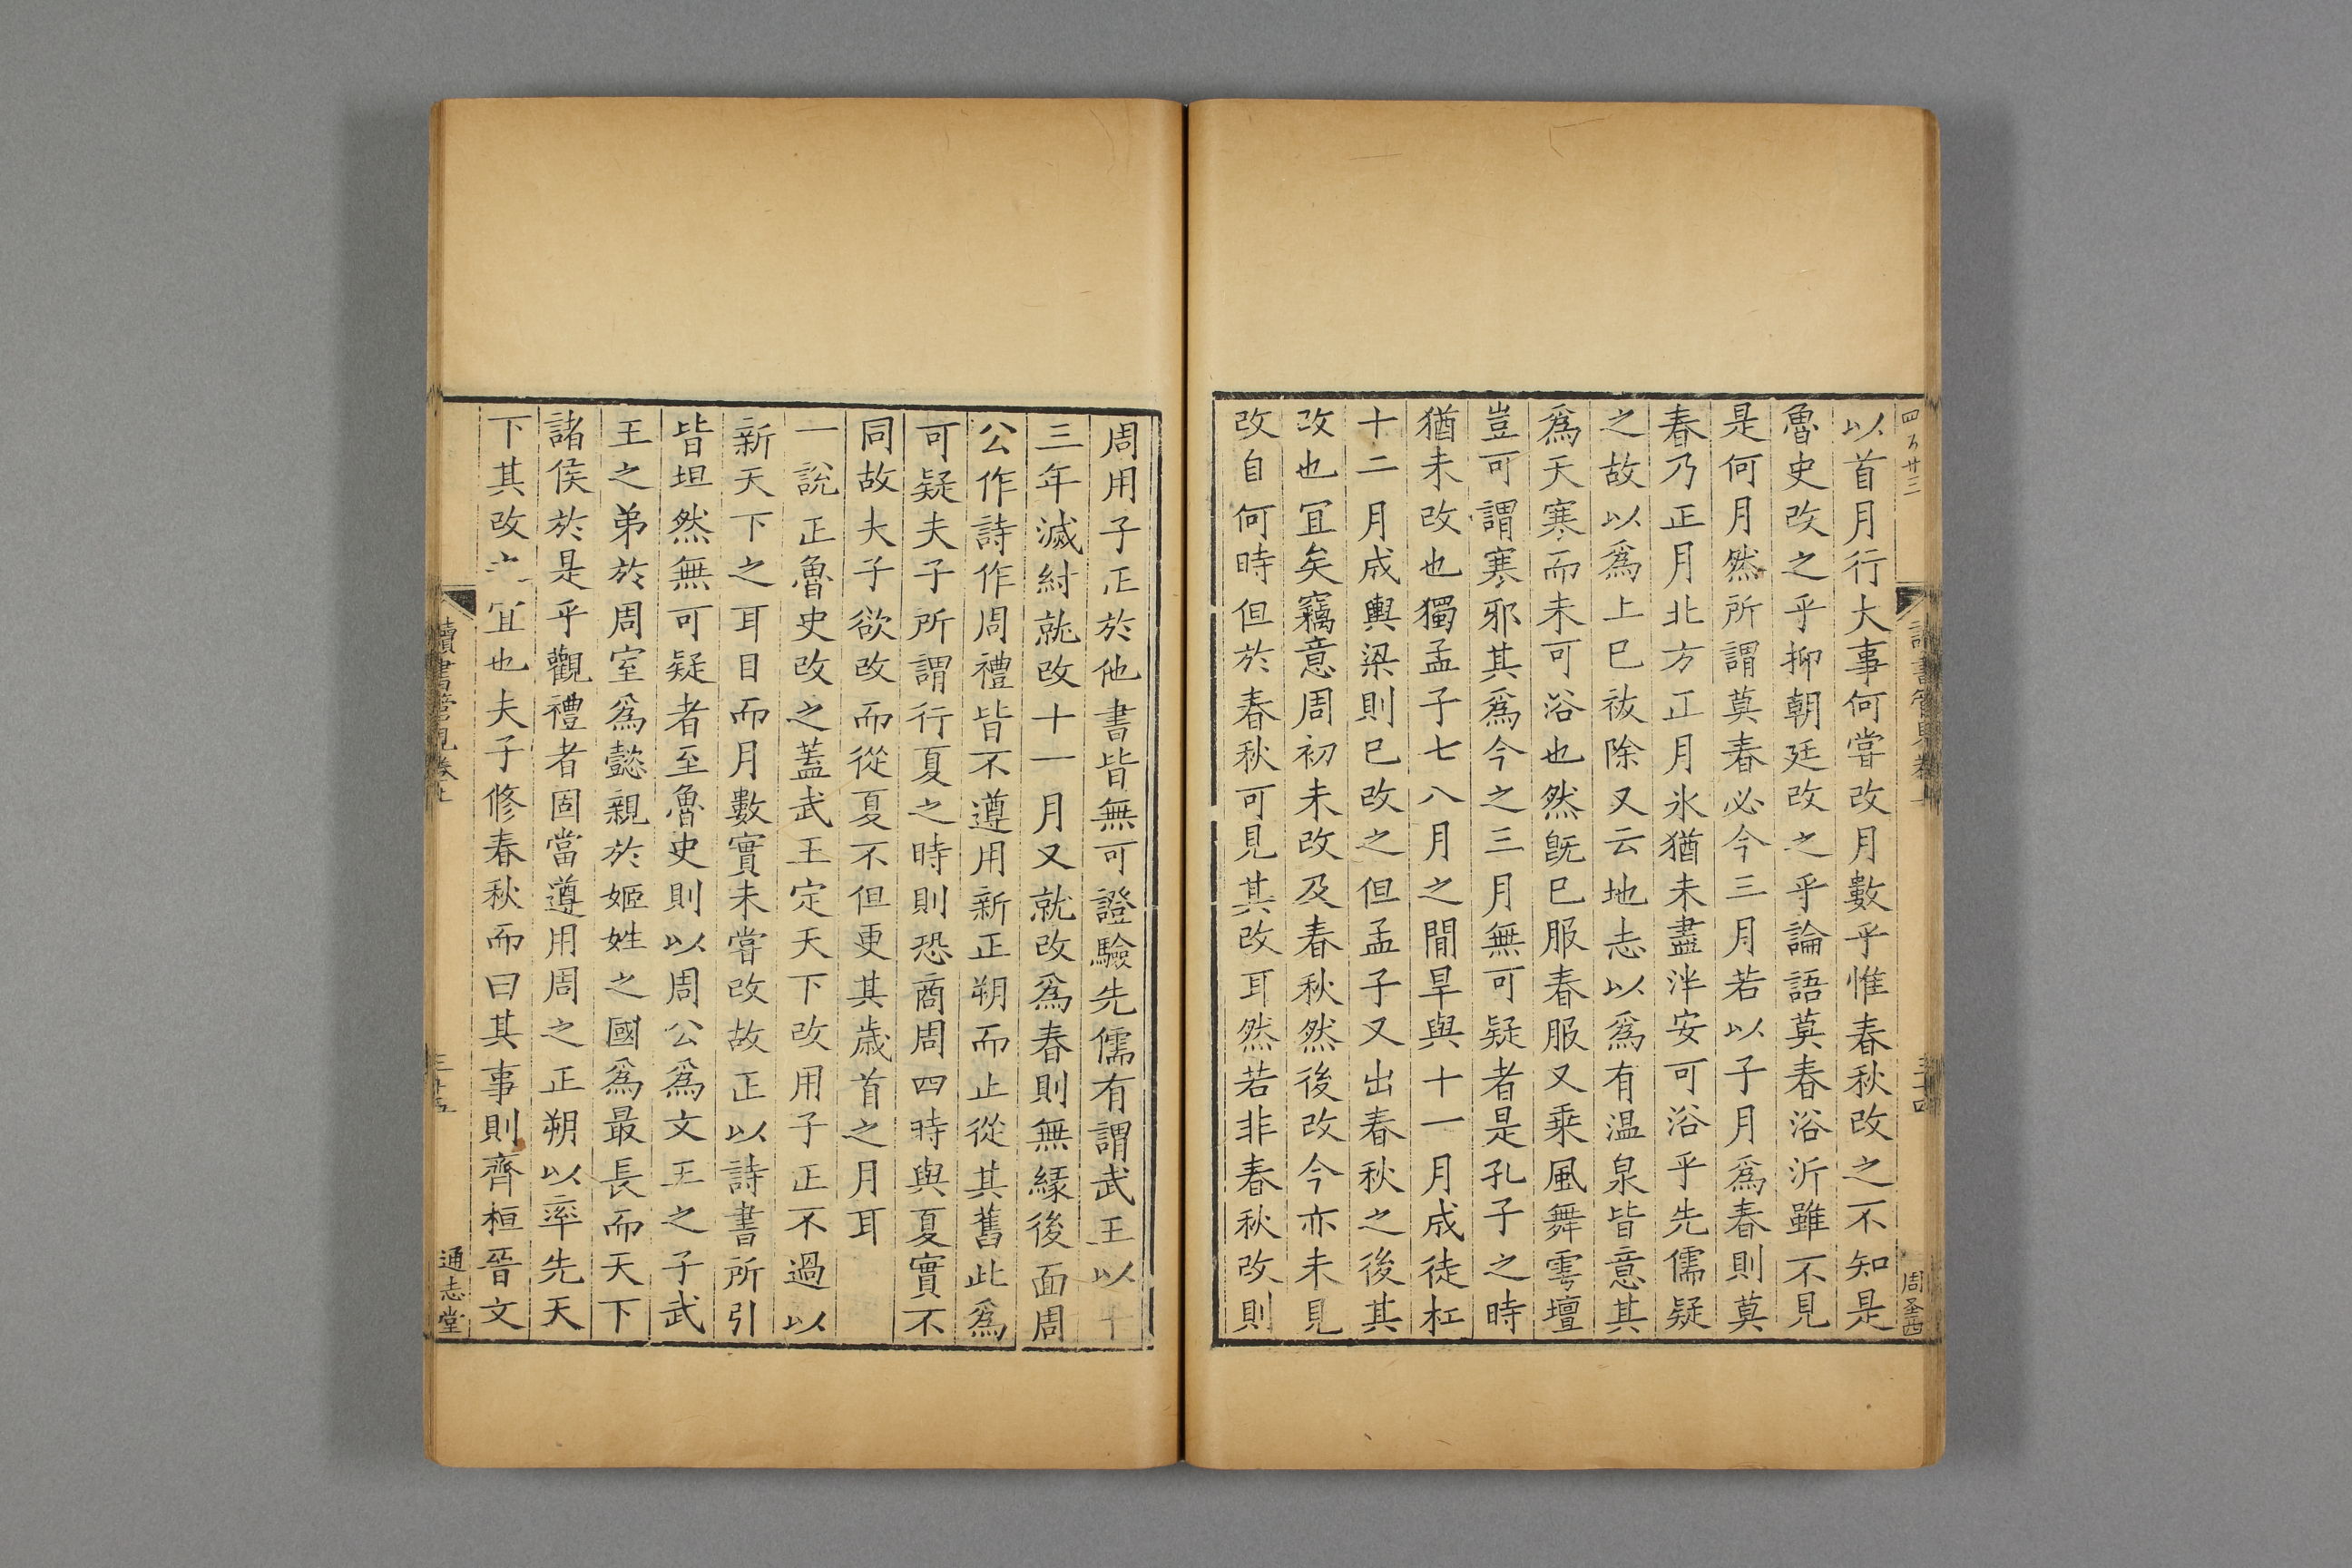 四百廿三
以首月行大事何嘗改月數乎惟春秋改之不知是
魯史改之乎抑朝廷改之乎論語莫春浴沂雖不見
是何月然所謂莫春必今三月若以子月爲春則莫
春乃正月北方正月氷猶未盡泮安可浴乎先儒疑
之故以爲上巳祓除又云地志以爲有温泉皆意其
爲天寒而未可浴也然旣巳服春服又乗風舞雩壇
豈可謂寒邪其爲今之三月無可疑者是孔子之時
猶未改也獨孟子七八月之間旱與十一月成徒杠
十二月成輿梁則巳改之但孟子又出春秋之後其
改也冝矣竊意周初未改及春秋然後改今亦未見
改自何時但於春秋可見其改耳然若非春秋改則
周用子正於他書皆無可證驗先儒有謂武王以十
三年滅紂就改十一月又就改爲春則無縁後面周
公作詩作周禮皆不遵用新正朔而止從其舊此爲
可疑夫子所謂行夏之時則恐商周四時與夏實不
同故夫子欲改而從夏不但更其歳首之月耳
一說正魯史改之蓋武王定天下改用子正不過以
新天下之耳目而月數實未嘗改故正以詩書所引
皆坦然無可疑者至魯史則以周公爲文王之子武
王之弟於周室爲懿親於姬姓之國爲最長而天下
諸侯於是乎觀禮者固當遵用周之正朔以率先天
下其改之冝也夫子修春秋而曰其事則齊桓晉文
讀書管見卷上
通志堂